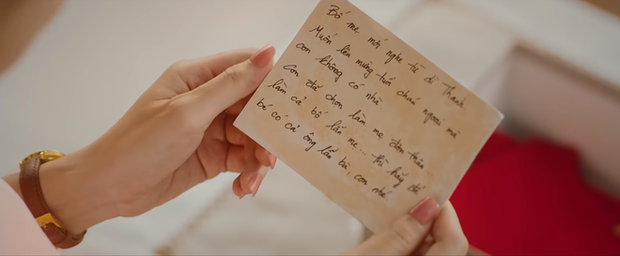 Bố mẹ mới nghe từ dì Thanh
Muốn lên mừng tuổi cháu ngoại mà
con không có nhà
Con đã chọn làm mẹ đơn thân
làm cả bố lẫn mẹ thì hãy để
bé có cả ông lẫn bà, con nhé